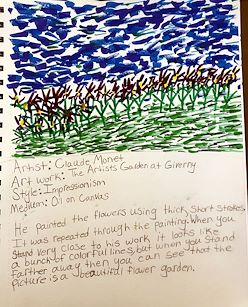 Artist: Claude Monet
Art work: The Artists Garden at Giverny
Style: Impressionism
Medium: Oil on Canvas
He painted the flowers using thick short strokes
It was repeated through the painting. When you
stand very close to his work it looks like
a bunch of colorful lines, but when you stand
farther away then you can see that the
picture is a beautiful flower garden.